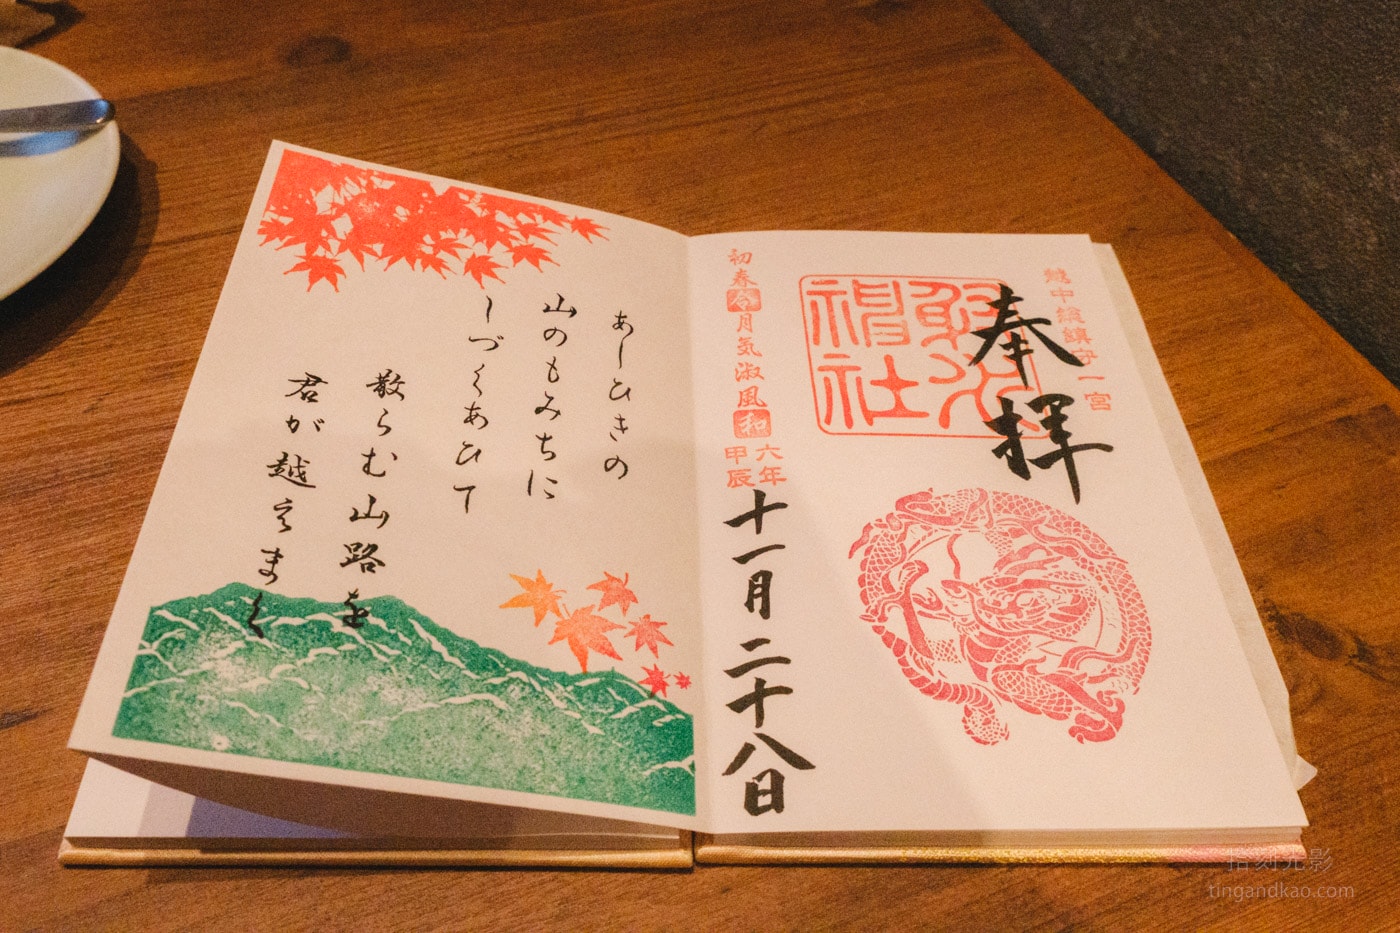 越中総鎮守一宮
奉拝
射水
神社
初春令月気淑風和
六年
甲辰
十一月二十八日
あしひきの
山のもみちに
しづくあひて
散らむ山路を
君が越えまく
拾刻光影
tingandkao.com